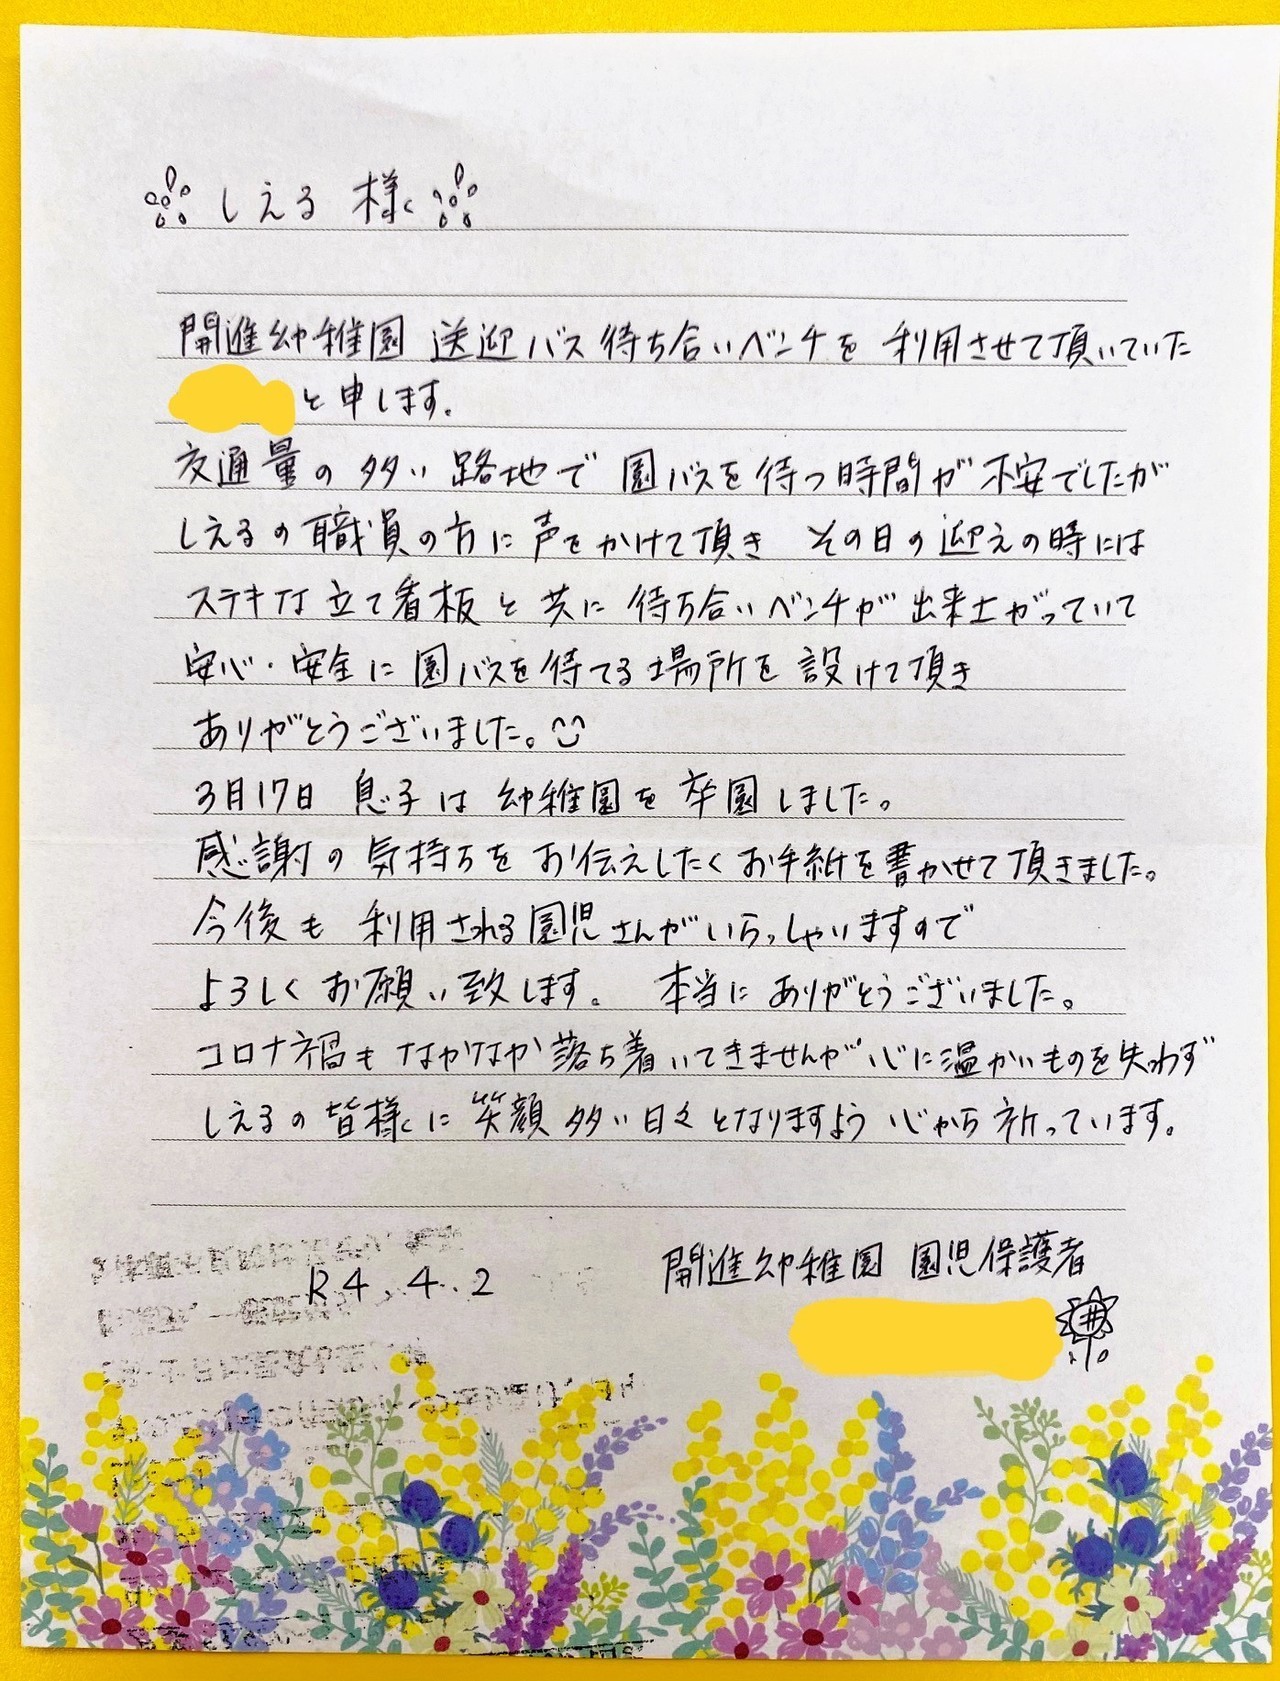 しえる 様
開進幼稚園 送迎バス待ち合いベンチを 利用させて頂いていた
と申します。
交通量の多い路地で 園バスを待つ時間が不安でしたが
しえるの職員の方に声をかけて頂き その日の迎えの時には
ステキな立て看板と共に 待ち合いベンチが出来上がっていて
安心・安全に園バスを待てる場所を設けて頂き
ありがとうございました。
3月17日 息子は幼稚園を卒園しました。
感謝の気持ちをお伝えしたくお手紙を書かせて頂きました。
今後も 利用される園児さんがいらっしゃいますので
よろしくお願い致します。 本当にありがとうございました。
コロナ禍もなかなか落ち着いてきませんが心に温かいものを失わず
しえるの皆様に笑顔多い日々となりますよう心から祈っています。
R4.4.2
開進幼稚園 園児保護者